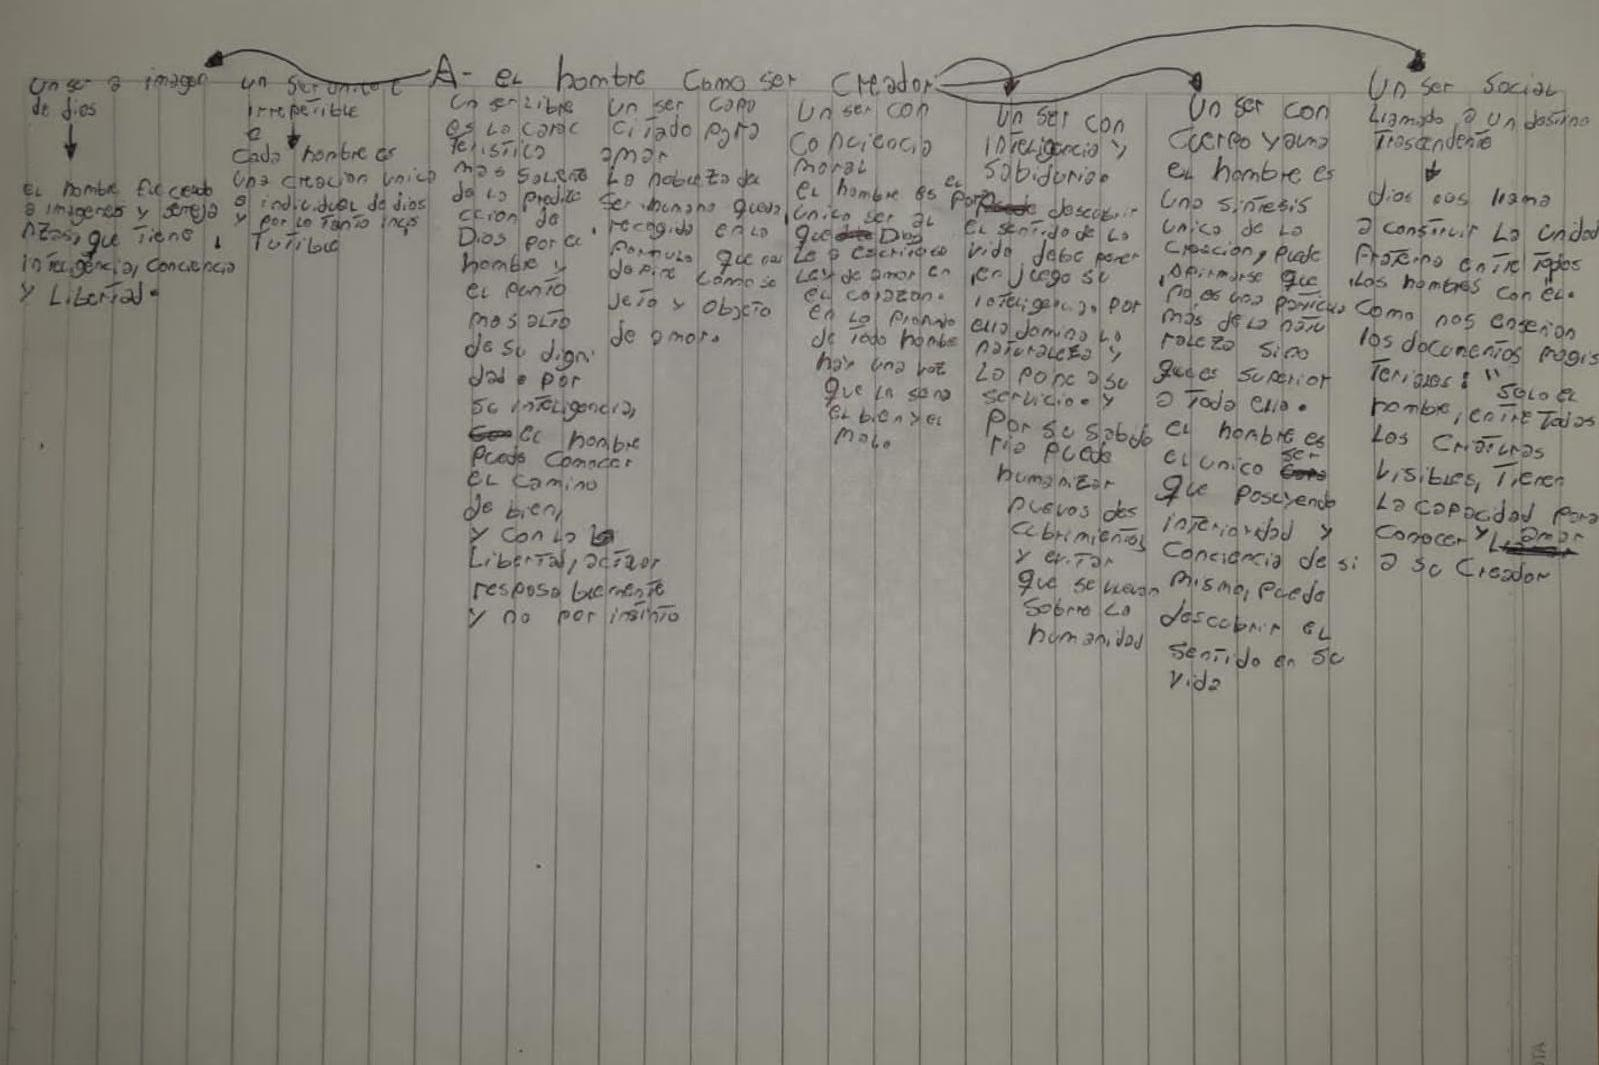 A- el hombre como ser creador
un ser a imagen
de dios
el hombre fue creado
a imagenes y semeja
nzas, que tiene
inteligencia, conciencia
y Libertad.
un ser unico e
irrepetible
Cada hombre es
una creacion unica
e individual de dios
y por lo tanto insus
tutible
Un ser Libre
es La carac
teristica
mas saliente
de la predile
ccion de
Dios por el
hombre y
el punto
mas alto
de su digni
dad. por
su inteligencia,
el hombre
puede conocer
el camino
de bien,
y con la
Libertad, actuar
resposablemente
y no por insinto
un ser capa
citado para
amar
La nobleza del
ser humano queda
recogida en la
formula que nos
define como su
jeto y objeto
de amor.
Un ser con
conciencia
moral
el hombre es el
unico ser al
que Dios
le a escrito
Ley de amor en
el corazon.
en lo profundo
de todo hombre
hay una voz
que la sena
el bien y el
malo
Un ser con
inteligencia y
sabiduria.
Para descubrir
el sentido de la
vida debe poner
en juego su
inteligencia, por
ella domina la
naturaleza y
la pone a su
servicio. y
por su sabidu
ria puede
humanizar
nuevos des
cubrimientos
y evitar
que se vuevan
sobre la
humanidad
Un ser con
cuerpo y alma
el hombre es
una sintesis
unica de la
creacion, puede
afirmarse que
no es una particula
mas de la natu
raleza sino
que es superior
a toda ella.
el hombre es
el unico ser
que poseyendo
interioridad y
conciencia de si
mismo, puede
descubrir el
sentido en su
vida
Un ser social
Llamado a un destino
trascendente
dios nos llama
a construir la unidad
fraterna entre todos
los hombres con él.
Como nos enseñan
los documentos magis
teriales: "solo el
hombre, entre todas
las criaturas
visibles, tienen
la capacidad para
conocer y amar
a su creador